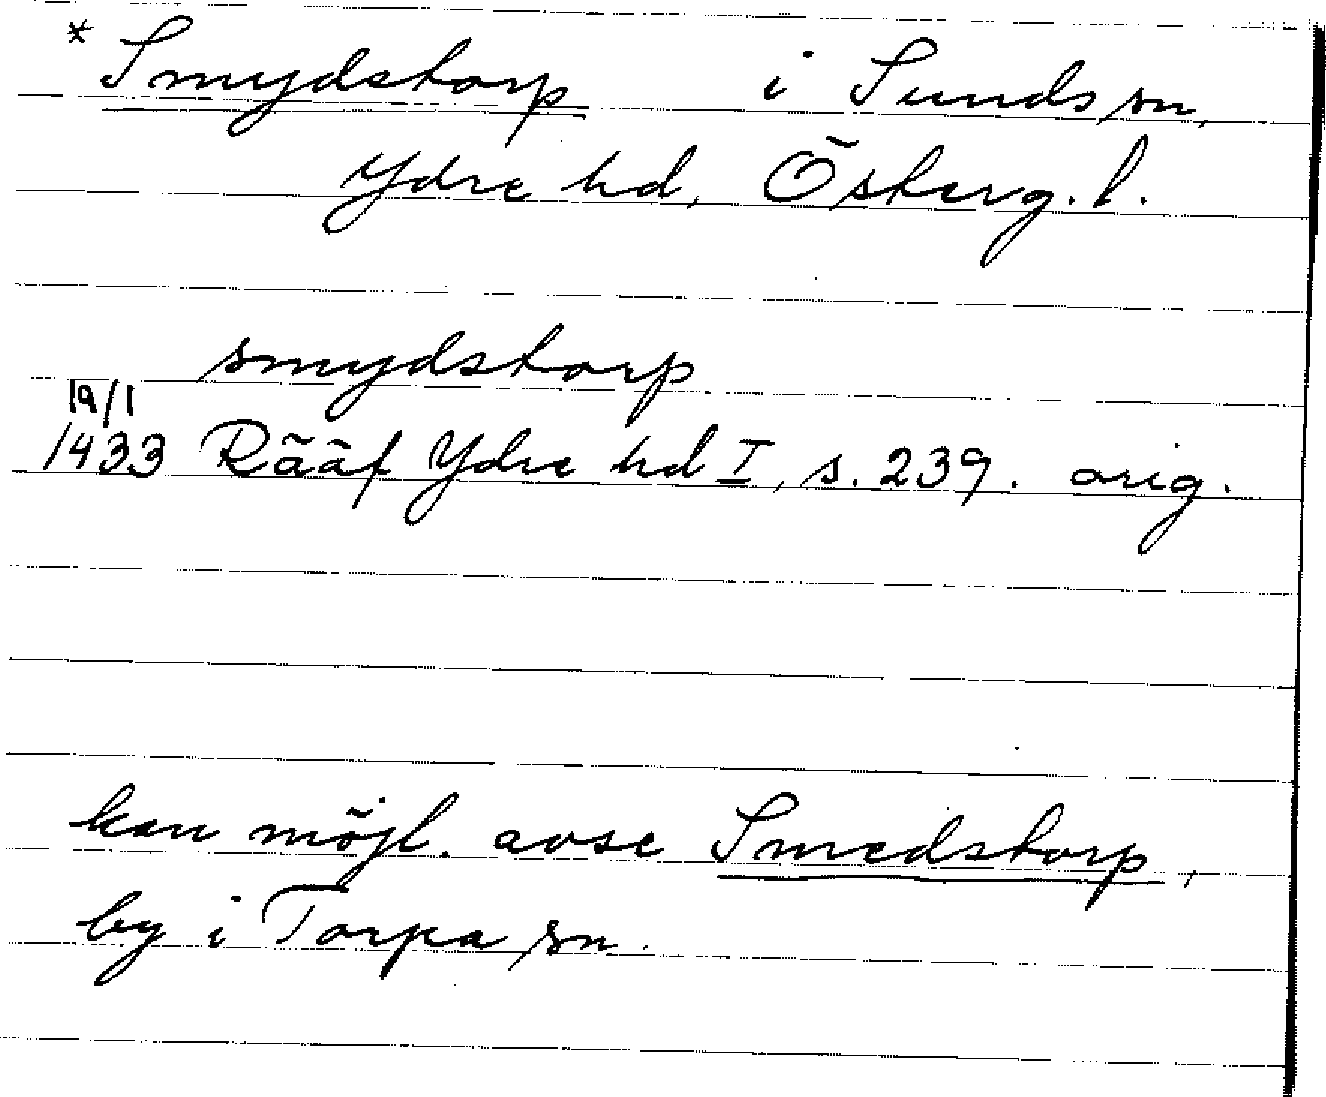 * Smydstorp i Sunds sn,
Ydre hd, Österg. l.
smydstorp
19/1
1433 Rääf Ydre hd I, s. 239. orig.
kan möjl. avse Smedstorp,
by i Torpa sn.